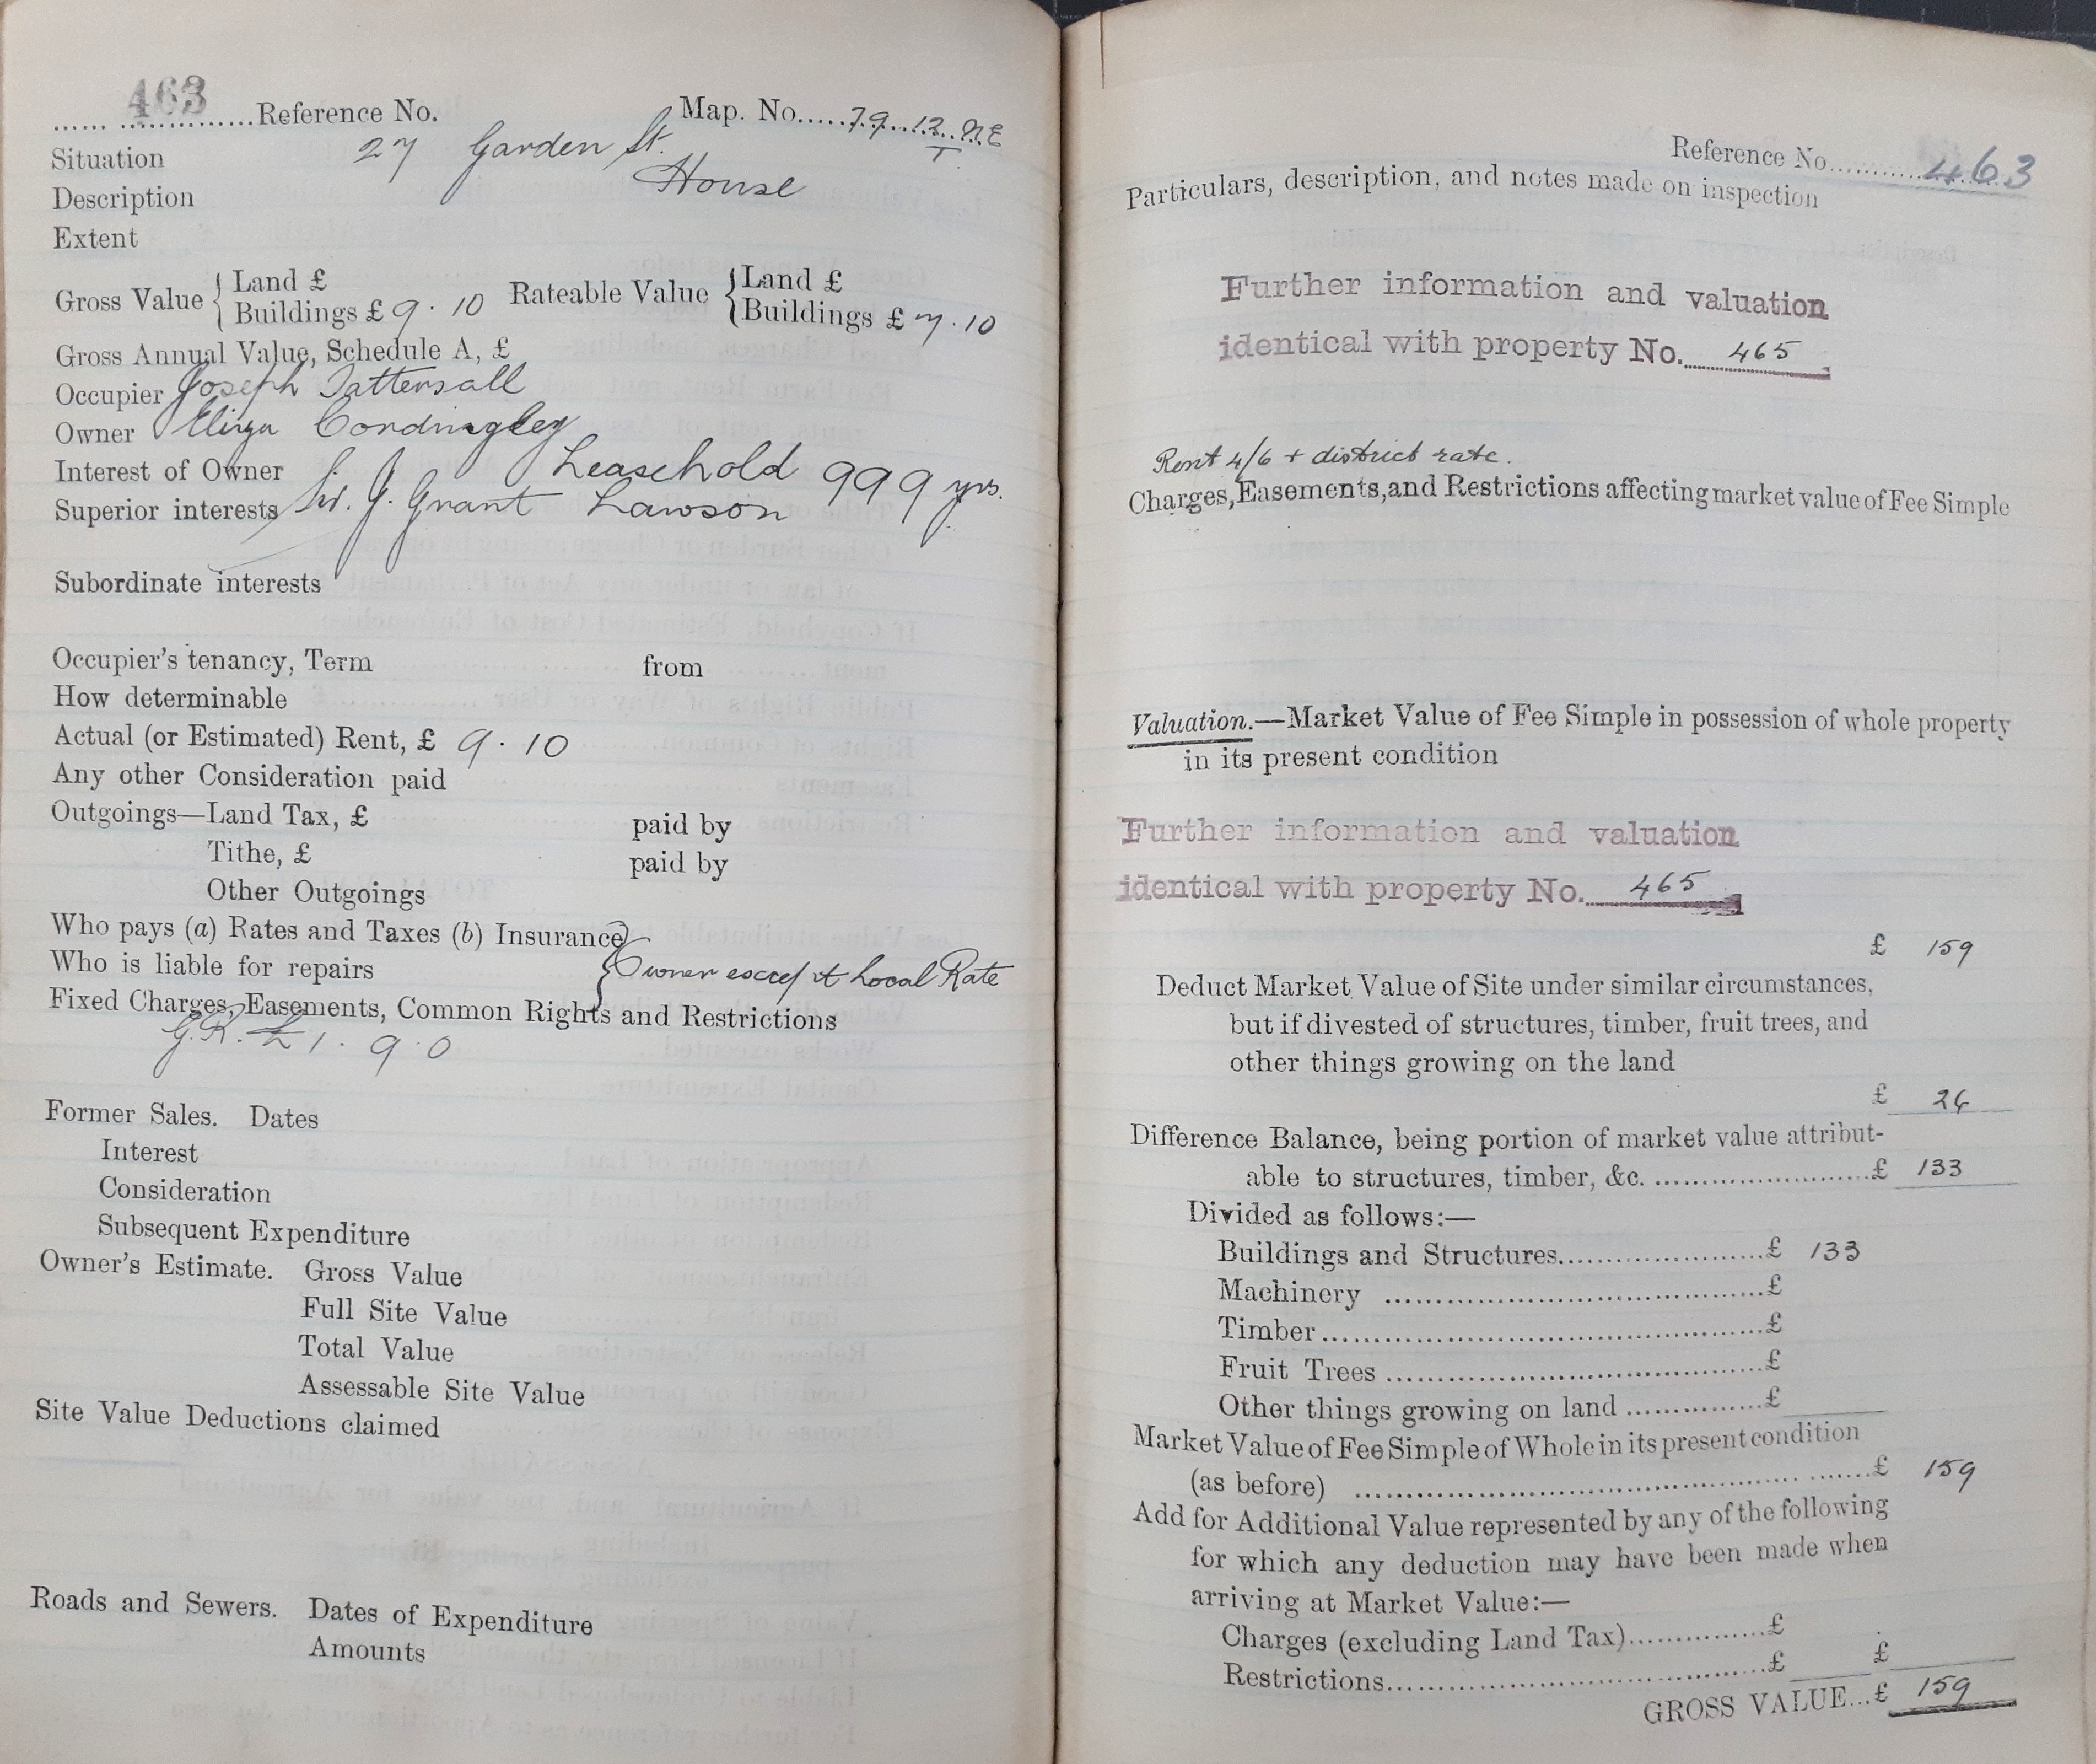 463 Reference No. Map. No. 79. 12. N.E
T
Situation 27 Garden St.
Description House
Extent
Gross Value { Land £ Rateable Value { Land £
Buildings £ 9 . 10 Buildings £ 7 . 10
Gross Annual Value, Schedule A, £
Occupier Joseph Tattersall
Owner Eliza Cordingley
Interest of Owner Leasehold 999 yrs.
Superior interests Sir. J. Grant Lawson
Subordinate interests
Occupier's tenancy, Term from
How determinable
Actual (or Estimated) Rent, £ 9 . 10
Any other Consideration paid
Outgoings—Land Tax, £ paid by
Tithe, £ paid by
Other Outgoings
Who pays (a) Rates and Taxes (b) Insurance
Who is liable for repairs } Owner except Local Rate
Fixed Charges, Easements, Common Rights and Restrictions
G.R. £1 . 9 . 0
Former Sales. Dates
Interest
Consideration
Subsequent Expenditure
Owner's Estimate. Gross Value
Full Site Value
Total Value
Assessable Site Value
Site Value Deductions claimed
Roads and Sewers. Dates of Expenditure
Amounts
Reference No. 463
Particulars, description, and notes made on inspection
Further information and valuation
identical with property No. 465
Rent 4/6 + district rate.
Charges, Easements, and Restrictions affecting market value of Fee Simple
Valuation.—Market Value of Fee Simple in possession of whole property
in its present condition
Further information and valuation
identical with property No. 465
£ 159
Deduct Market Value of Site under similar circumstances,
but if divested of structures, timber, fruit trees, and
other things growing on the land
£ 26
Difference Balance, being portion of market value attribut-
able to structures, timber, &c. £ 133
Divided as follows:—
Buildings and Structures £ 133
Machinery £
Timber £
Fruit Trees £
Other things growing on land £
Market Value of Fee Simple of Whole in its present condition
(as before) £ 159
Add for Additional Value represented by any of the following
for which any deduction may have been made when
arriving at Market Value:—
Charges (excluding Land Tax) £
Restrictions £ £
GROSS VALUE... £ 159